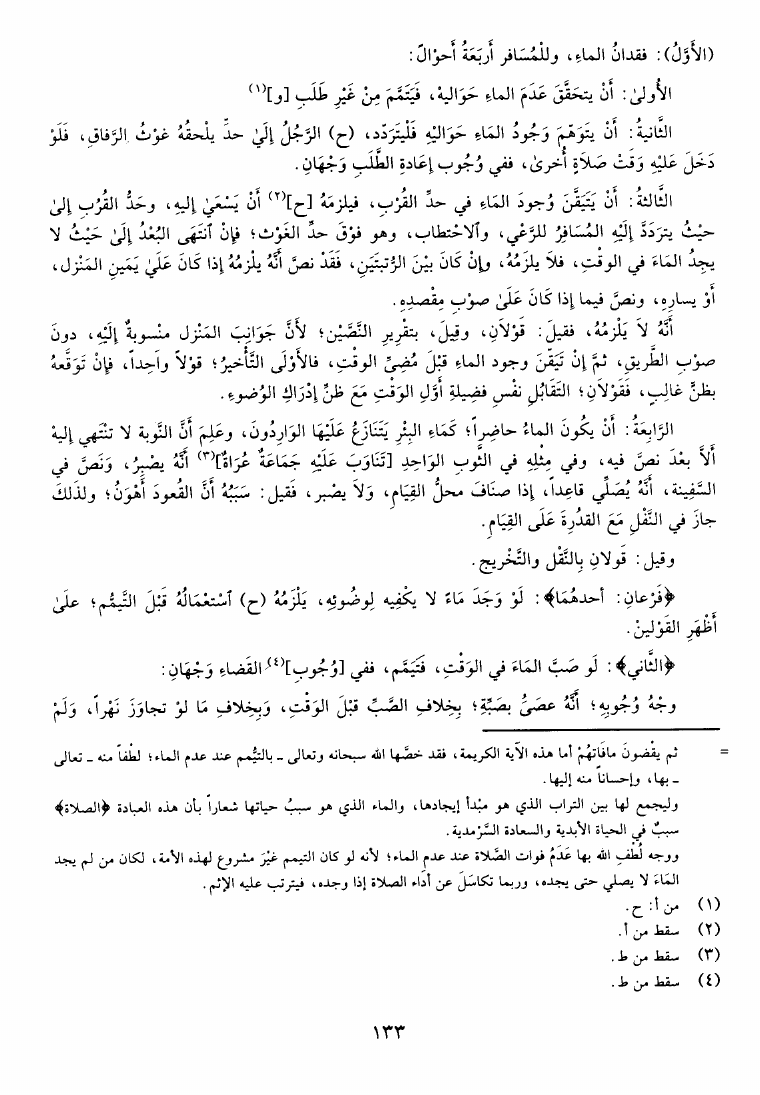 (الأَوَّلُ): فقدانُ الماءِ، وللْمُسَافر أربَعَةُ أَحوْالٌ:
الأُولىٰ: أَنْ يتحَقَّقَ عَدَمَ الماءِ حَوَاليهْ، فَيَتمَّمَ مِنْ غَيْرِ طَلَبِ [و](١)
الثَّانيةُ: أَنْ يتَوَهَّمَ وَجُودُ المَاءِ حَوَاليْهِ فَلْيَتردّد، (ح) الرَّجُلُ إِلَىٰ حدِّ يلْحقُهُ غوْثُ الرَّفاقِ، فَلَوْ
دَخَلَ عَليْهِ وَقَتْ صَلاَةٍ أُخرىٰ، ففي وُجُوب إِعَادةِ الطَّلَبِ وَجْهَانِ.
الثَّالثةُ: أَنْ يَتَيَقَّنَ وُجودَ المَاءِ في حدِّ القُرْبِ، فيلزمَهُ [ح](٢) أَنْ يَسْعَىٰ إليهِ، وحَدُّ القُرُبِ إلىٰ
حيْثُ يتردَدَّ إِلَيْهِ المُسَافِرُ للرَّعْي، والاحْتطاب، وهو فوْقَ حدِّ الغَوْث؛ فإنْ انتَهى البُعْدُ إِلَىٰ حَيْثُ لا
يجِدُ المَاءَ في الوقْتِ، فلاَ يلزَمُهُ، وإنْ كَانَ بيْنَ الرُّتبَتَيَنِ، فَقَدْ نصَّ أنَّهُ يلْزمُهُ إذا كَانَ عَلَىٰ يَمِينِ المَنْزل،
أَوْ يسارِهِ، ونصَّ فيما إذا كَانَ عَلَىٰ صوْبِ مِقْصدِهِ.
أَنَّهُ لاَ يَلْزمُهُ، فقيلَ: قَوْلاَنِ، وقِيلَ، بتقْرِيرِ النَّصَّيْنِ؛ لأَنَّ جَوَانِبَ المَنْزل منْسوبةٌ إِلَيْهِ، دونَ
صوْبِ الطَّريقِ، ثمَّ إِنْ تَيَقَّنَ وجود الماءِ قبْلَ مُضِىِّ الوقْتِ، فالأَوْلَى التَّأْخيرُ؛ قوْلاً واحِداً، فإنْ تَوَقَّعهُ
بظنِّ غالِبٍ، فَقَوْلاَنِ؛ التَقَابُلِ نفْسِ فضيلةِ أوَّلِ الوَقْتِ مَعَ ظنِّ إِدْرَاكِ الوُضوءِ.
الرَّابِعَةُ: أَنْ يكُونَ المَاءُ حاضِراً؛ كمَاءِ البِئْرِ يَتَنَازَعُ عَلَيْهَا الوَارِدُونَ، وعلِمَ أنَّ النَّوبة لا تنْتَهي إليهِ
ألاَّ بعْدَ نصَّ فيه، وفي مِثْلِهِ في الثَّوبِ الوَاحِدِ [تَنَاوَبَ عَلَيْهِ جَمَاعَةٌ عُرَاةٌ](٣) أَنَّهُ يصْبِرُ، وَنَصَّ في
السَّفِينة، أَنَّهُ يُصَلِّي قاعِداً، إذا صنَافَ محلُّ القِيَامِ، وَلاَ يصْبر، فَقيل: سَبَبُهُ أَنَّ القُعودَ أَهْوَنُ؛ ولذلكَ
جازَ في النَّفْلِ مَعَ القدُرةِ عَلَى القِيَامِ.
وقيل: قَولان بِالنَّقْل والتَّخْريج.
﴿فَرْعانِ: أحدهُمَا﴾: لَوْ وَجَدَ مَاءً لا يكْفِيه لِوضُوئِهِ، يَلْزَمُهُ (ح) استعْمَالُهُ قبْلَ التَّيمُّم؛ علىٰ
أَظْهَرِ القَوْلينْ.
﴿الثَّاني﴾: لَو صَبَّ المَاءَ في الوَقْتِ، فَتَيَمَّم، ففي [وُجُوبِ](٤) القَضاءِ وَجْهَانِ:
وجْهُ وُجُوبِهِ؛ أنَّهُ عصَىُ بِصَبِّهِ؛ بِخلافِ الصَّبِّ قبْلَ الوَقْتِ، وَبِخِلافِ مَا لوْ تجاوَزَ نَهْراً، وَلَمْ
= ثم يقْضونَ مافَاتهُمْ أما هذه الآية الكريمة، فقد خصَّها الله سبحانه وتعالى ـ بالتيُّمم عند عدم الماء؛ لطْفاً منه ـ تعالى
ـ بها، وإحساناً منه إليها.
وليجمع لها بين التراب الذي هو مبْدأ إيجادها، والماء الذي هو سببُ حياتها شعاراً بأن هذه العبادة ﴿الصلاة﴾
سببٌ في الحياة الأبدية والسعادة السَّرْمدية.
ووجه لُطْفِ الله بها عَدَمُ فوات الصَّلاة عند عدم الماء؛ لأنه لو كان التيمم غيْرَ مشروع لهذه الأمة، لكان من لم يجد
المَاءَ لا يصلي حتى يجده، وربما تكاسَلَ عن أدَاء الصلاة إذا وجده، فيترتب عليه الإثم.
(١) من أ: ح.
(٢) سقط من أ.
(٣) سقط من ط.
(٤) سقط من ط.
١٣٣